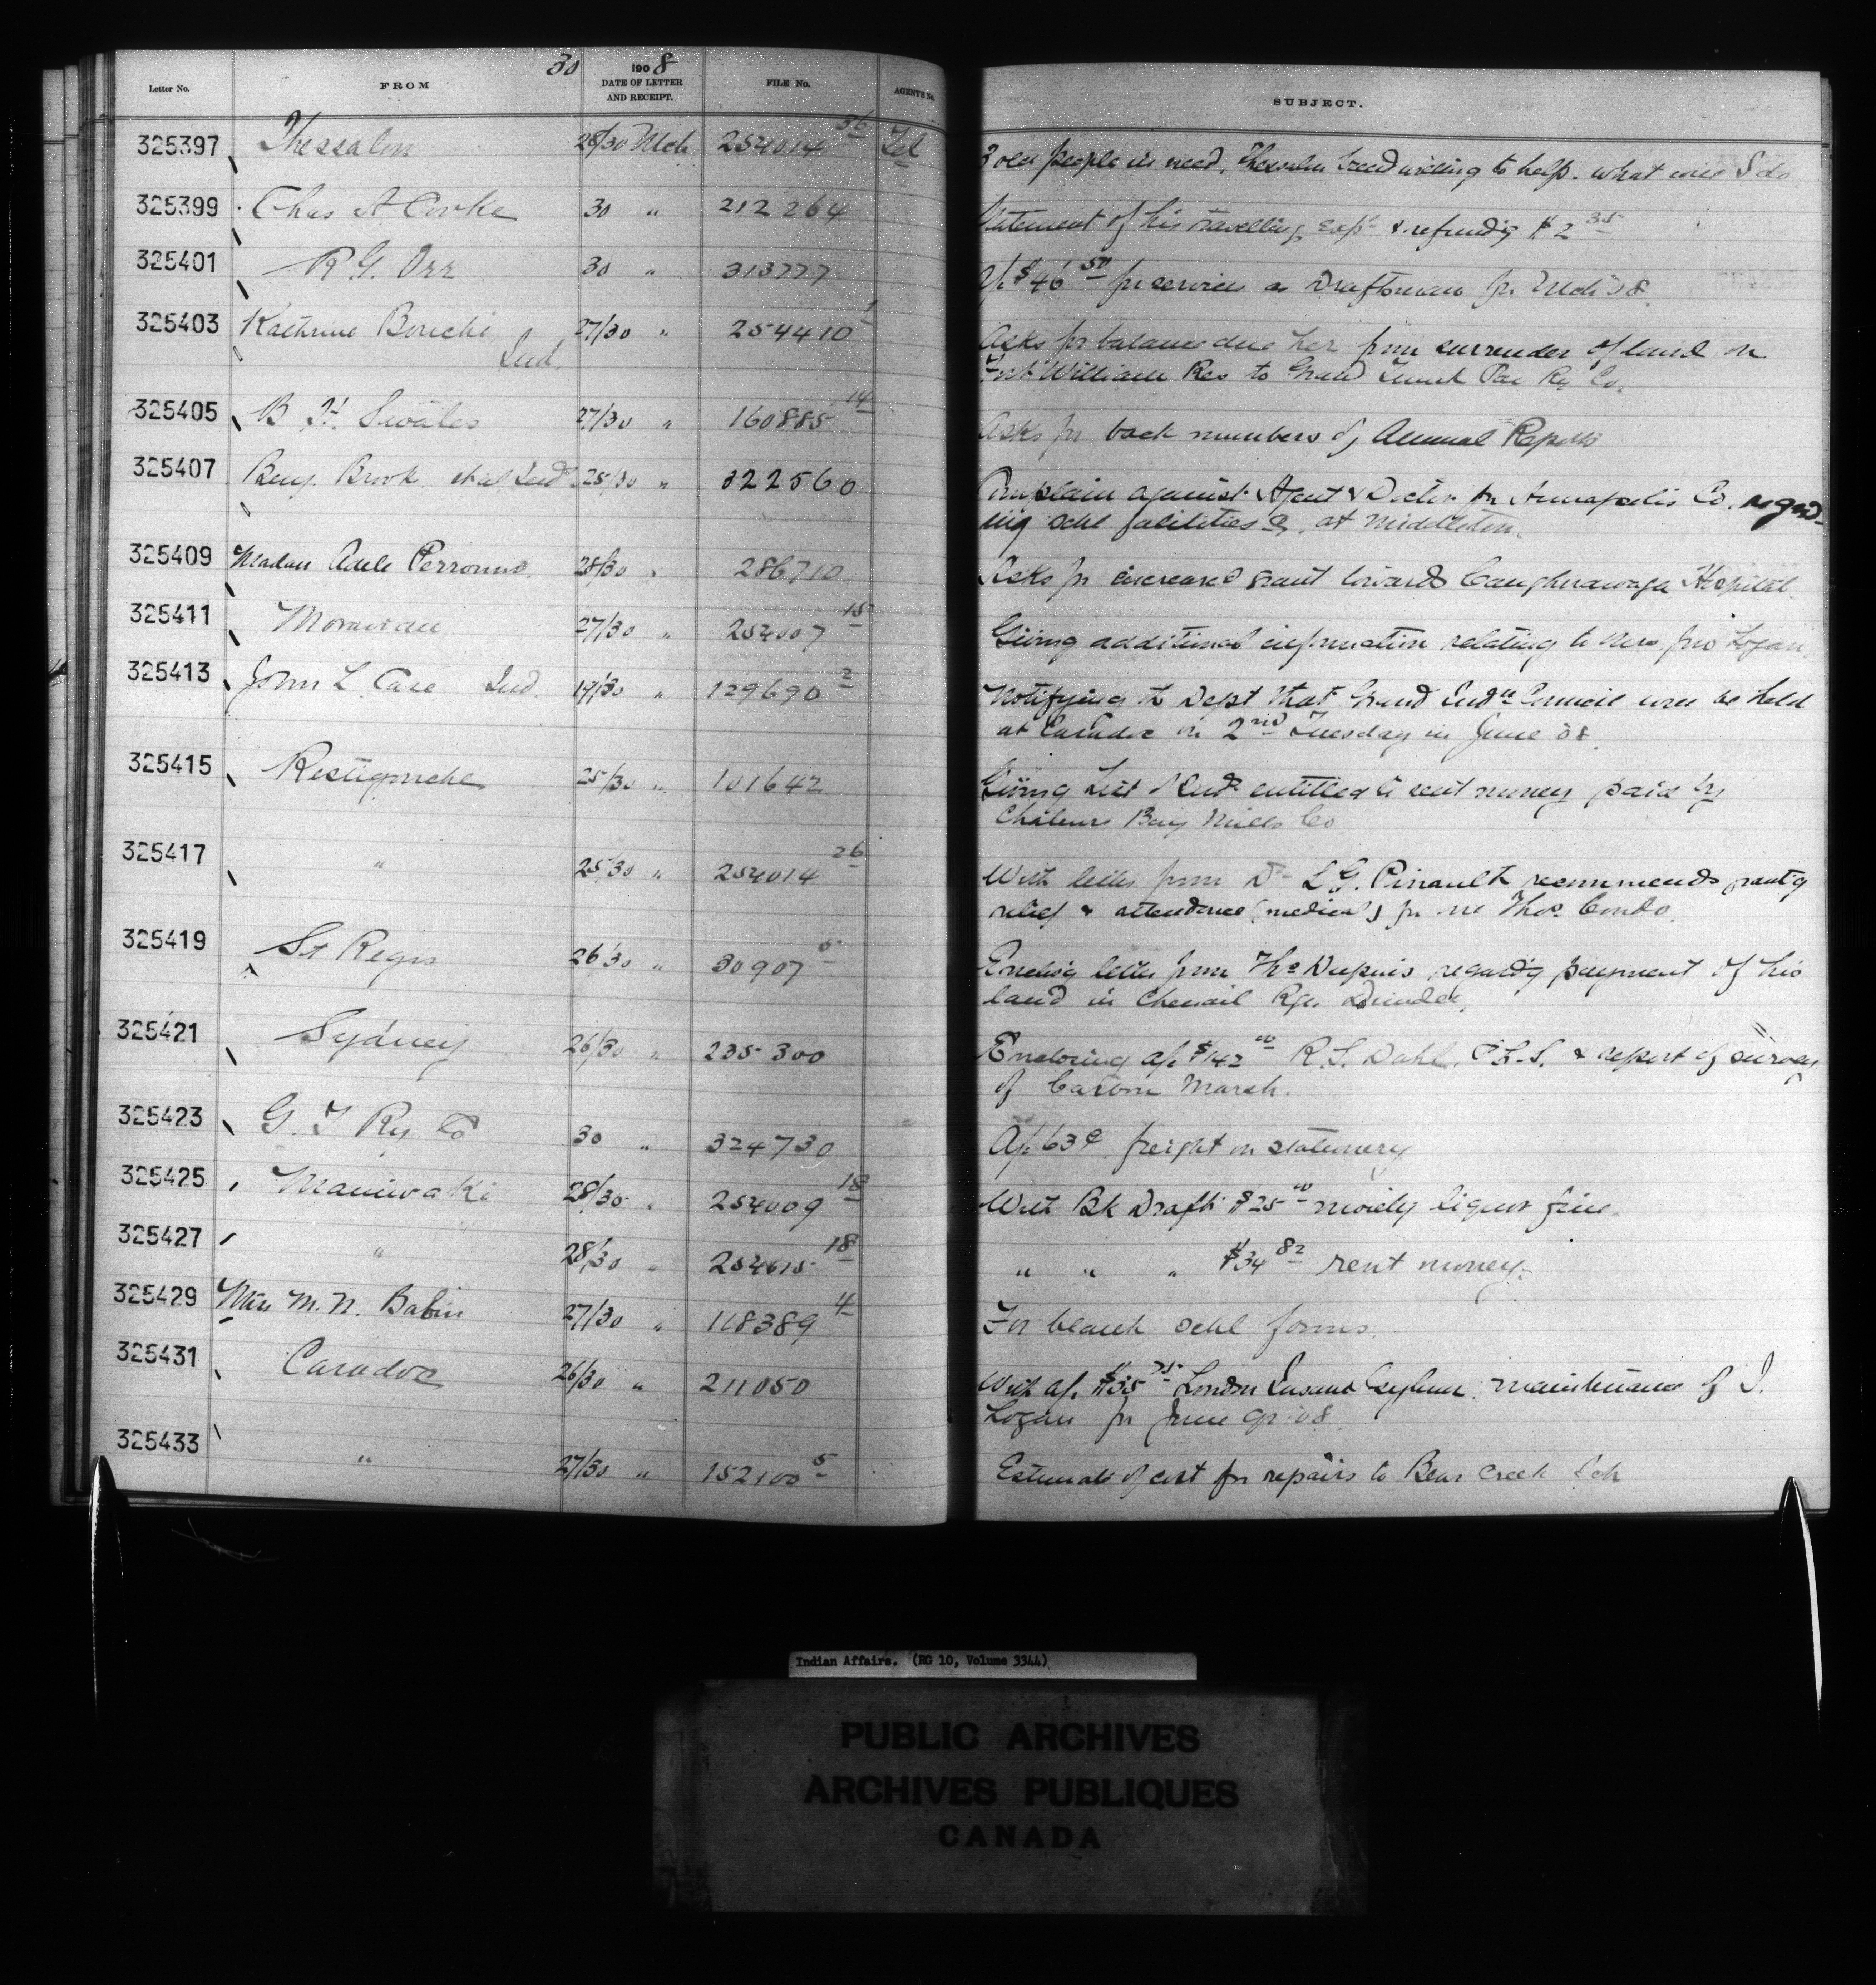 30 1908
Letter No. FROM DATE OF LETTER AND RECEIPT. FILE No. AGENT'S No. SUBJECT.
325397 Thessalon 28/30 Mch 254014 36 Tel 3 old people in need, Thessalon band willing to help. what will I do
325399 Chas A Cooke 30 " 212264 Statement of his travelling exps & refund'g $2 35
325401 R G. Orr 30 " 313777 a/c $46 50 for services as Draftsman for Mch '08.
325403 Kathrine Bouchi, Ind. 27/30 " 254410 1 Asks for balance due her from surrender of land on
Fort William Res to Grand Trunk Pac Ry Co.
325405 B. H. Swales 27/30 " 160885 14 Asks for back numbers of Annual Reports
325407 Benj. Brook et al Inds. 25/30 " 322560 Complain against Agent & Doctor for Annapolis Co. regard-
ing schl facilities &c. at Middleton.
325409 Madam Adele Perronno 28/30 " 286710 Asks for increased grant towards Caughnawaga Hospital.
325411 Moravian 27/30 " 254007 15 Giving additional information relating to Mrs. Jno Logan.
325413 John L. Case Ind. 19/30 " 129690 2 Notifying the Dept that Grand Indn Council will be held
at Caradoc on 2nd Tuesday in June 08.
325415 Restigouche 25/30 " 101642 Giving List of Inds entitled to rent money paid by
Chaleurs Bay Mills Co
325417 " 25/30 " 254014 26 With letter from Dr L G. Pinault recommends grant'g
relief & attendance (medical) for one Thos. Condo.
325419 St Regis 26/30 " 30907 5 Enclos'g letter from Ths Dupuis regard'g payment of his
land in Chenail Rge. Dundee,
325421 Sydney 26/30 " 235300 Enclosing a/c $142 00 R. S. Dahl. P.L.S. & report of survey
of Caribou Marsh.
325423 G. T Ry Co 30 " 324730 A/c 63¢ freight on stationery
325425 Maniwaki 28/30 " 254009 18 With Bk Draft $25 00 moiety liquor fine.
325427 " " 28/30 " 254015 18 " " " $34 82 rent money.
325429 Miss M. N. Babin 27/30 " 118389 4 For blank schl forms.
325431 Caradoc 26/30 " 211050 With a/c $35 75 London Insane Asylum. maintenance of I.
Logan for June qr '08.
325433 " 27/30 " 152100 5 Estimate of cost for repairs to Bear Creek Sch
Indian Affairs. (RG 10, Volume 3344)
PUBLIC ARCHIVES
ARCHIVES PUBLIQUES
CANADA